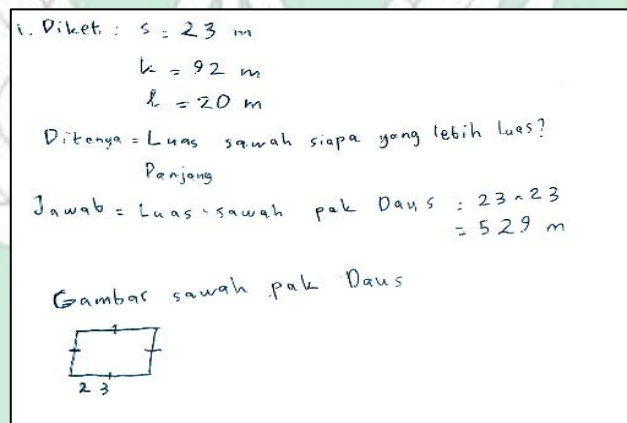 1. Diket : s = 23 m
k = 92 m
l = 20 m
Ditanya = Luas sawah siapa yang lebih luas?
Panjang
Jawab = Luas sawah pak Daus : 23 × 23
= 529 m
Gambar sawah pak Daus
23